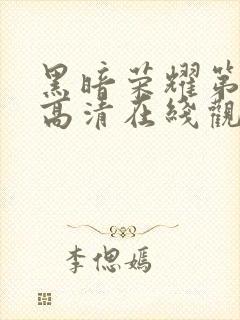 黑暗荣耀第
高清在线觀
李偲嫣